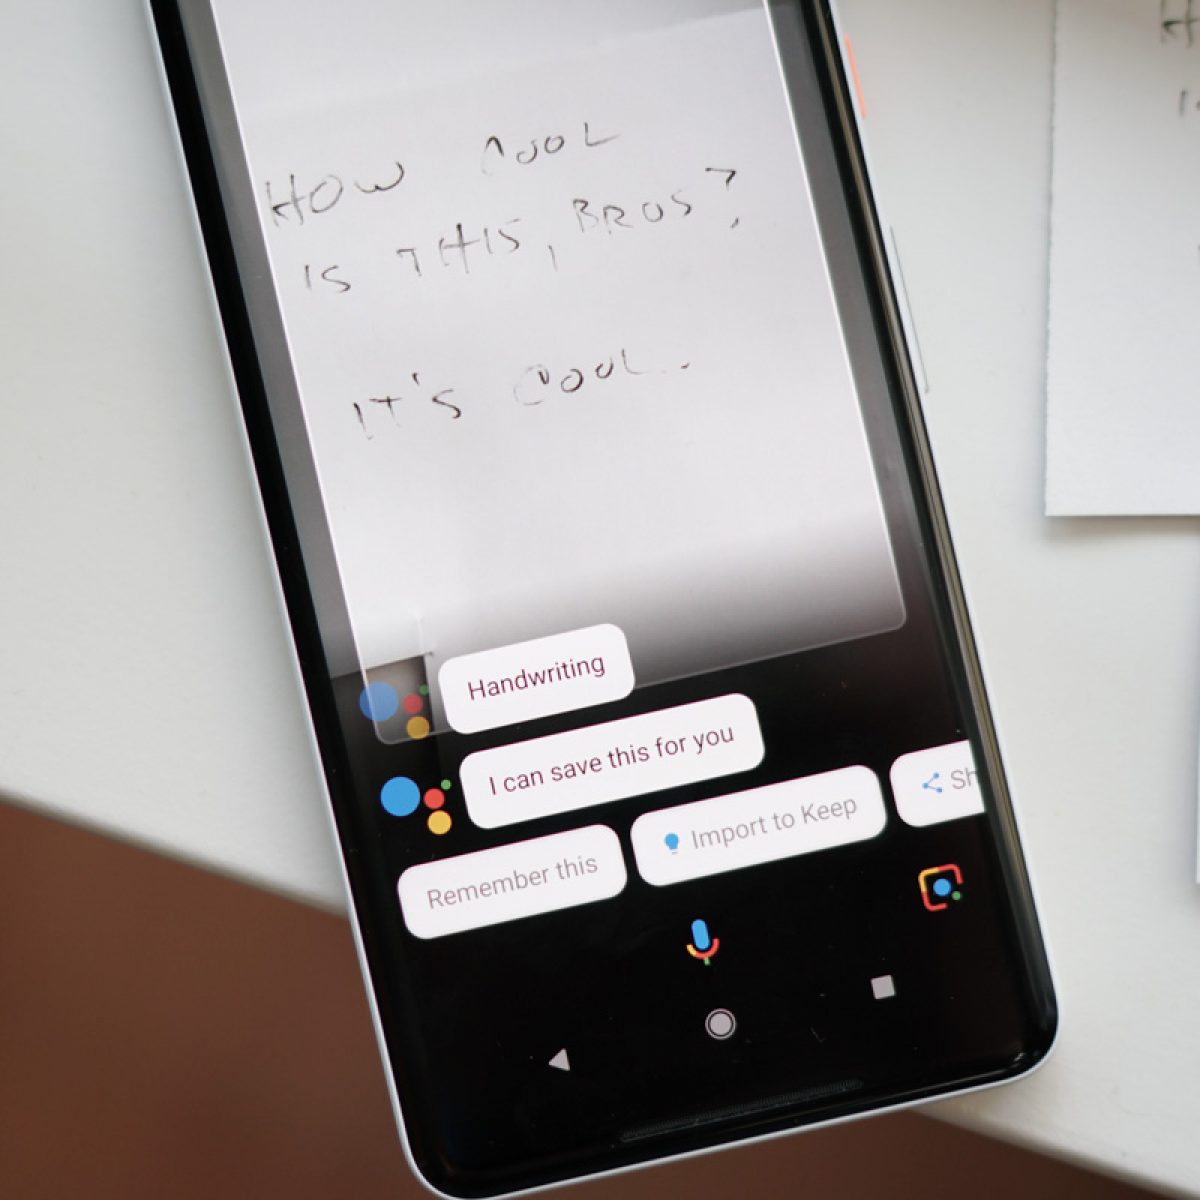 HOW COOL
IS THIS, BROS?
IT'S COOL.
Handwriting
I can save this for you
Remember this
Import to Keep
Sh